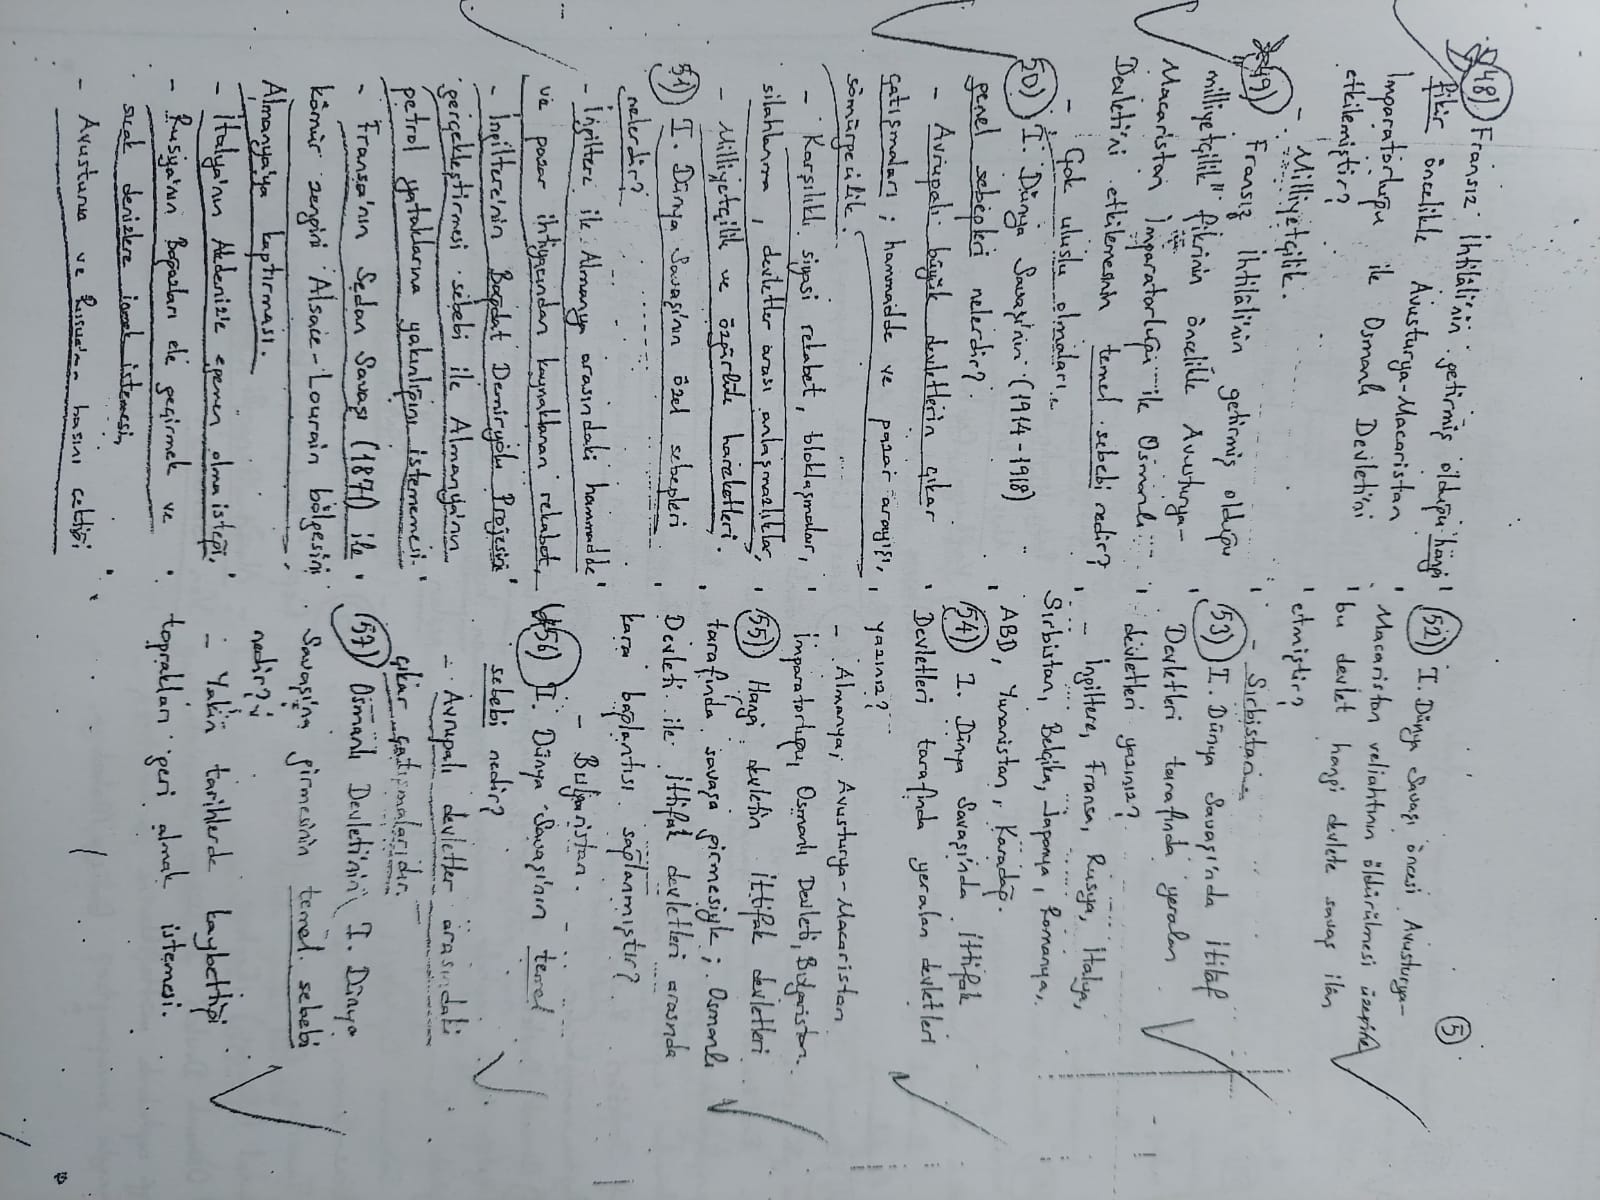 48) Fransız İhtilâli'nin getirmiş olduğu hangi
fikir öncelikle Avusturya-Macaristan
İmparatorluğu ile Osmanlı Devleti'ni
etkilemiştir?
- Milliyetçilik.
49) Fransız İhtilâli'nin getirmiş olduğu
"milliyetçilik" fikrinin öncelikle Avusturya-
Macaristan İmparatorluğu ile Osmanlı
Devleti'ni etkilemesinin temel sebebi nedir?
- Çok uluslu olmaları.
50) I. Dünya Savaşı'nın (1914-1918)
genel sebepleri nelerdir?
- Avrupalı büyük devletlerin çıkar
çatışmaları; hammadde ve pazar arayışı,
sömürgecilik.
- Karşılıklı siyasi rekabet, bloklaşmalar,
silahlanma, devletler arası anlaşmazlıklar,
- Milliyetçilik ve özgürlük hareketleri.
51) I. Dünya Savaşı'nın özel sebepleri
nelerdir?
- İngiltere ile Almanya arasındaki hammadde
ve pazar ihtiyacından kaynaklanan rekabet,
- İngiltere'nin Bağdat Demiryolu Projesini
gerçekleştirmesi sebebi ile Almanya'nın
petrol yataklarına yakınlığını istememesi.
- Fransa'nın Sedan Savaşı (1871) ile
kömür zengini Alsace-Lourain bölgesini
Almanya'ya kaptırması.
- İtalya'nın Akdeniz'e egemen olma isteği,
- Rusya'nın Boğazları ele geçirmek ve
sıcak denizlere inmek istemesi,
- Avusturya ve Rusya'nın başını çektiği
5
52) I. Dünya Savaşı öncesi Avusturya-
Macaristan veliahtının öldürülmesi üzerine
bu devlet hangi devlete savaş ilân
etmiştir?
- Sırbistan.
53) I. Dünya Savaşı'nda İtilâf
Devletleri tarafında yeralan
devletleri yazınız?
- İngiltere, Fransa, Rusya, İtalya,
Sırbistan, Belçika, Japonya, Romanya,
ABD, Yunanistan, Karadağ.
54) I. Dünya Savaşı'nda İttifak
Devletleri tarafında yeralan devletleri
yazınız?
- Almanya, Avusturya-Macaristan
İmparatorluğu, Osmanlı Devleti, Bulgaristan.
55) Hangi devletin İttifak devletleri
tarafında savaşa girmesiyle; Osmanlı
Devleti ile İttifak devletleri arasında
kara bağlantısı sağlanmıştır?
- Bulgaristan.
56) I. Dünya Savaşı'nın temel
sebebi nedir?
- Avrupalı devletler arasındaki
çıkar çatışmalarıdır.
57) Osmanlı Devleti'nin I. Dünya
Savaşı'na girmesinin temel sebebi
nedir?
- Yakın tarihlerde kaybettiği
toprakları geri almak istemesi.